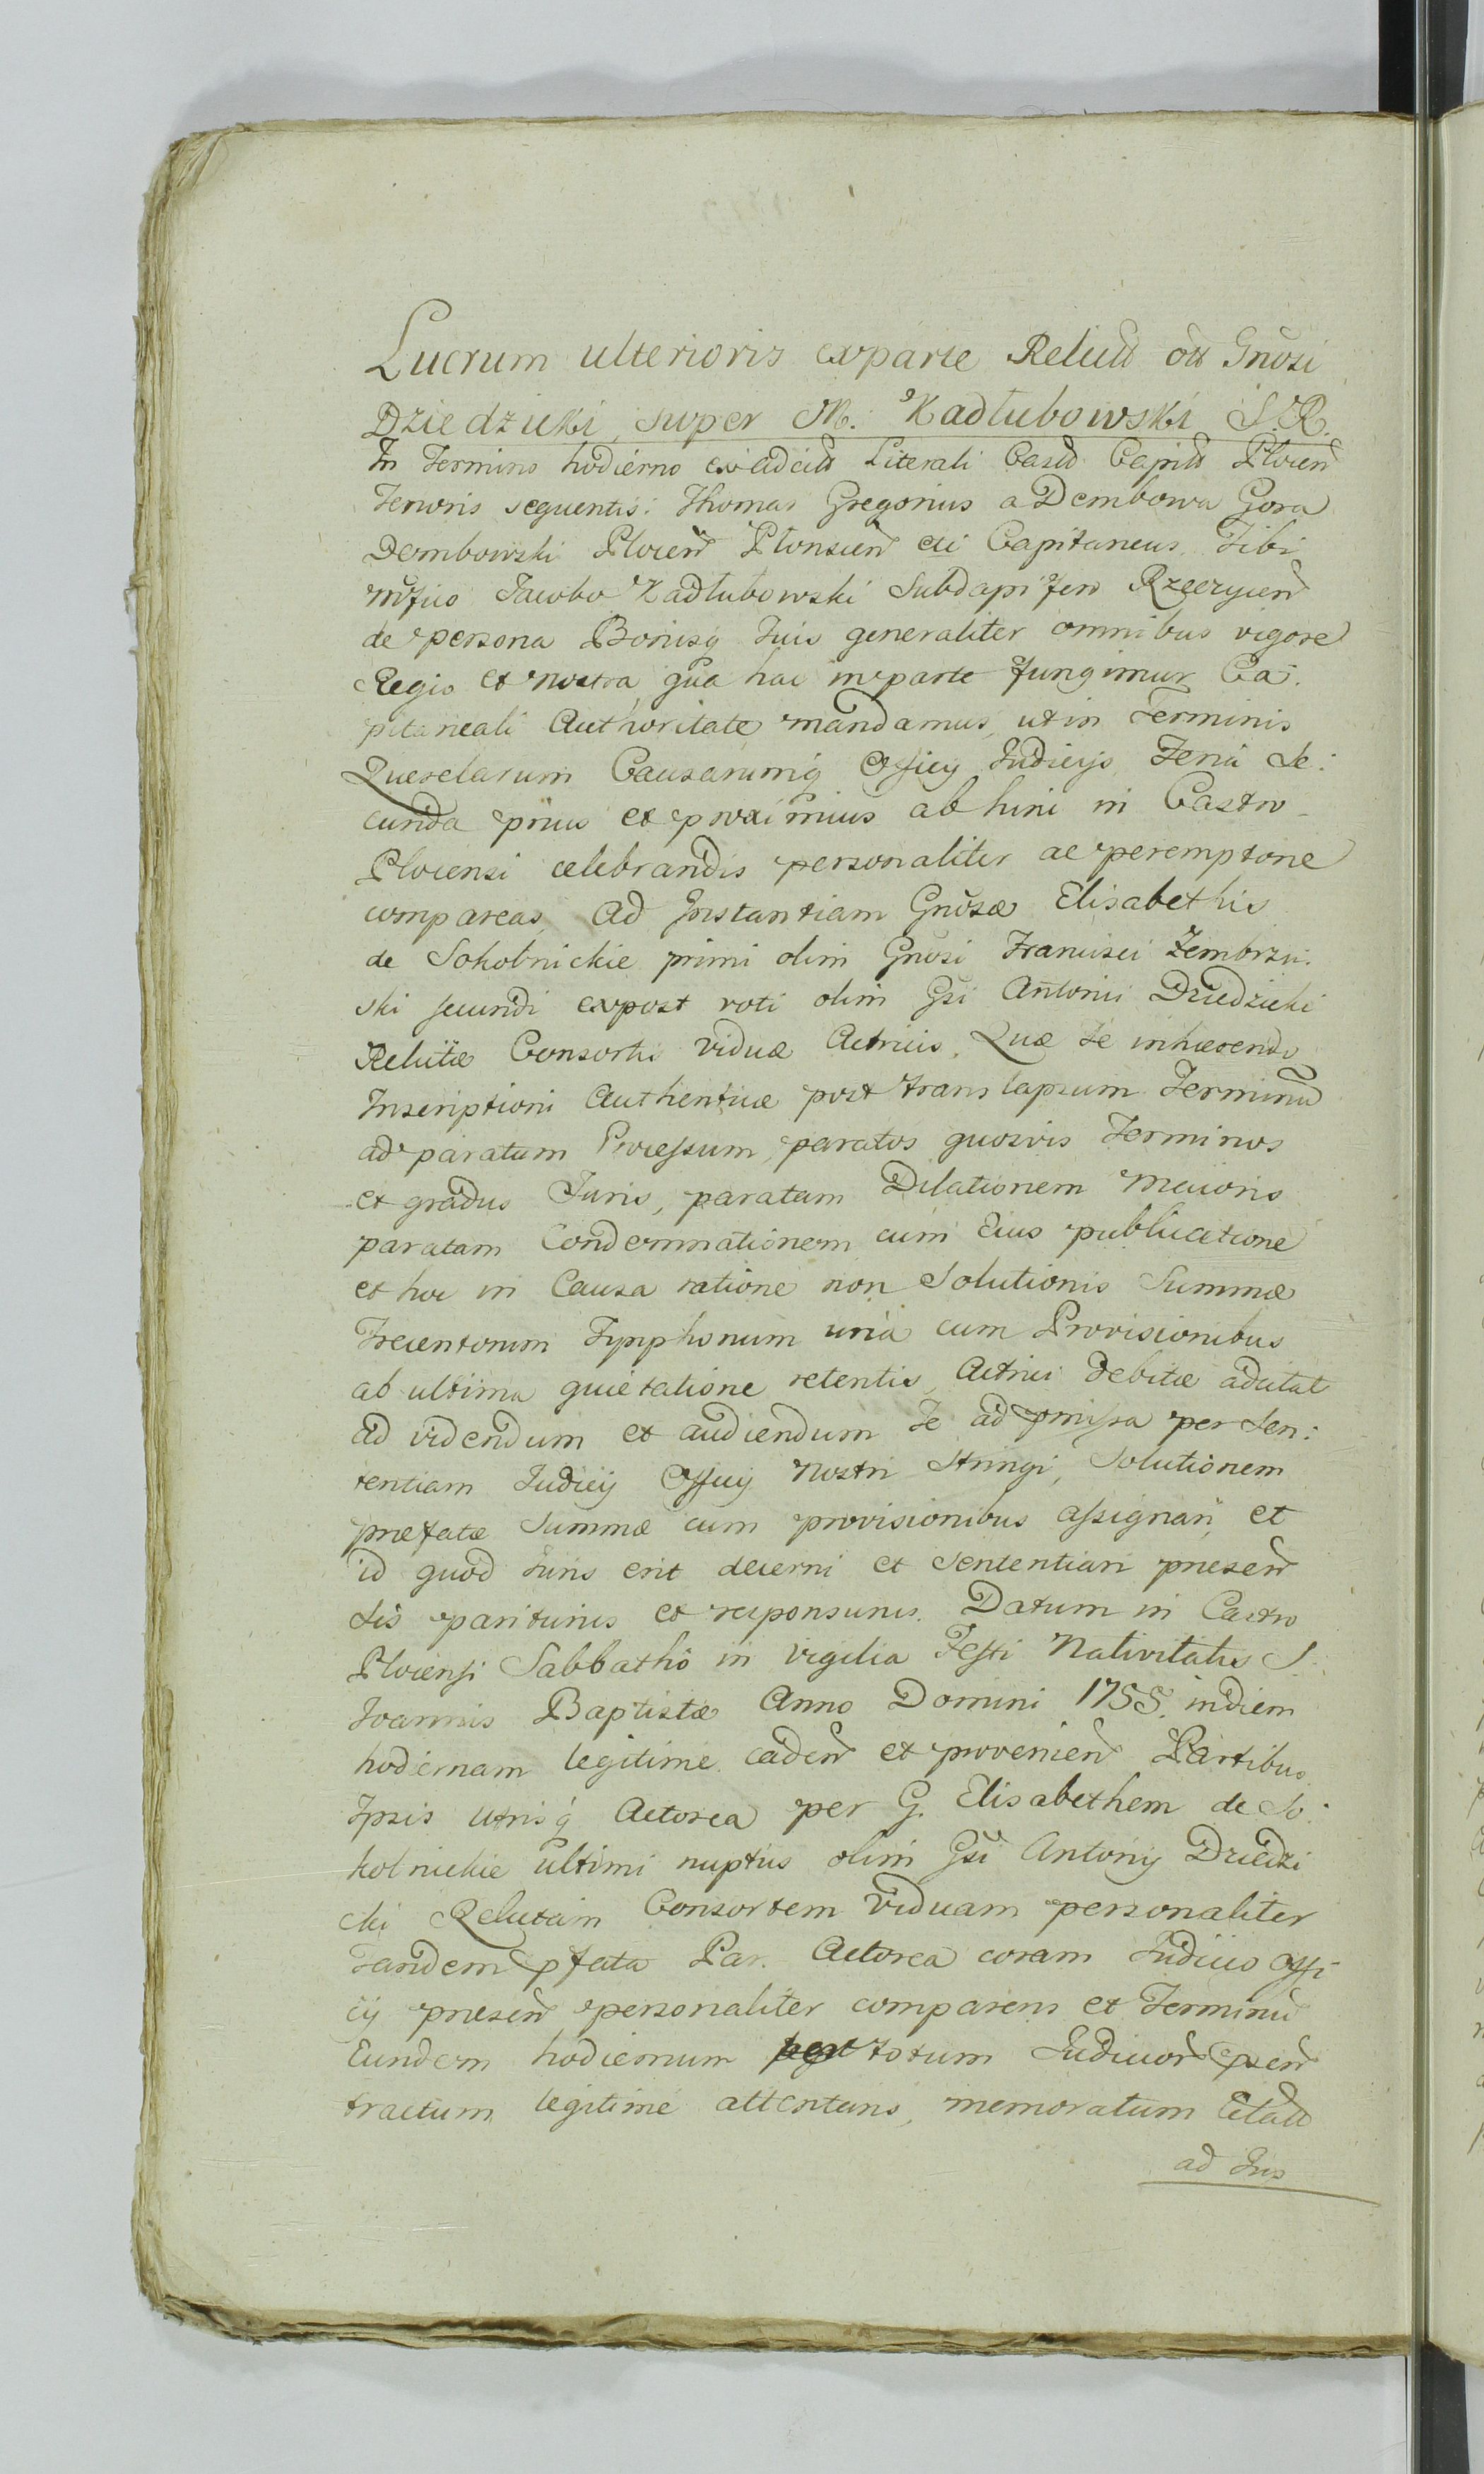 Lucrum ulterioris exparte Relictt ott Gnosi
Dziedzicki, super M. Kadłubowski S. R.
In Termino hodierno ex Literali Castt Capitt Plocen
Tenoris sequentis: Thomas Gregorius a Dembowa Gora
Dembowski Plocen Plonscen etc Capitaneus, Tibi
mfico Jacobo Kadłubowski Subdapifero Rzeczycen
de persona Bonisq Tuis generaliter omnibus vigore
Regio et nostra qua hac inparte fungimur Ca:
pitaneali Authoritate mandamus, utin Terminis
Querelarum Causarumq Officij Judicijs, Feria Se:
cunda prius et proximius abhinc in Castro
Plocensi celebrandis personaliter ac peremptorie
compareas, Ad Instantiam Gnosæ Elisabethis
de Sokolnickie primi olim Gnosi Francisci Zembrzu:
ski secundi expost voti olim Gsi Antonii Dziedzicki
Relictæ Consortis viduæ Actricis. Quæ Te inhærendo
Inscriptioni Authenticæ post translapsum Terminū
ad paratum Processum, paratos quosvis Terminos
et gradus Juris, paratam Dilationem Maioris
paratam Condemnationem cum Eius publicatione
et hoc in Causa ratione non Solutionis Summæ
Trecentorum Tymphonum unà cum Provisionibus
ab ultima quietatione retentis, Actrici debitæ adcitat
Ad videndum et audiendum Te ad pmissa per Sen:
tentiam Judicij Officij Nostri Stringi, Solutionem
præfatæ Summæ cum provisionibus assignari, et
id quod Juris erit decerni et Sententiari presen
tis pariturus et responsurus. Datum in Castro
Plocensi Sabbatho in vigilia Festi Nativitatis S
Joannis Baptistæ Anno Domini 1755. indiem
hodiernam legitime caden et provenien Partibus
Ipsis utrisq Actorea per G. Elisabethem de So:
kolnickie ultimi nuptus olim Gsi Antonij Dziedzi
cki Relictam Consortem Viduam personaliter
Tandem pfata Par. Actorea coram Judicio Offi
cij presen personaliter comparens et Terminū
Eundem hodiernum totum Judicior psen
tractum legitime attentans, memoratum Citatt
ad Jus